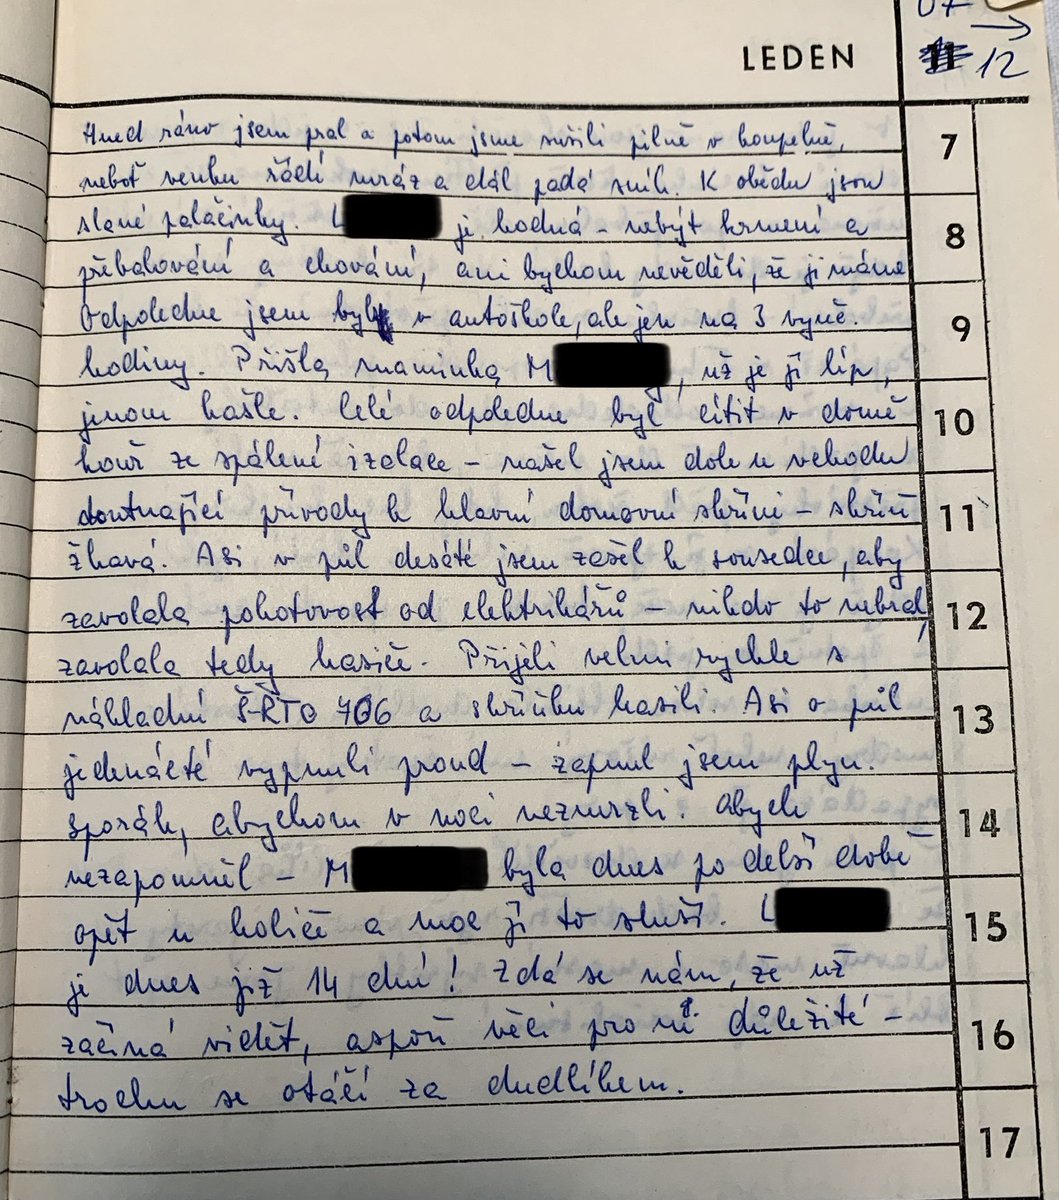 07 →
LEDEN
11 12
Hned ráno jsem pral a potom jsme sušili pilně v koupelně, 7
neboť venku řádí mráz a dál padá sníh. K obědu jsou
slané palačinky. L je hodná – nebýt krmení a 8
přebalování a chování, ani bychom nevěděli, že ji máme
Odpoledne jsem byl v autoškole, ale jen na 3 vyuč. 9
hodiny. Přišla maminka M y, už je jí líp,
jenom kašle. Celé odpoledne byl cítit v domě 10
kouř ze spálené izolace – našel jsem dole u vchodu
doutnající přívody k hlavní domovní skříni – skříň 11
žhavá. Asi v půl desáté jsem zašel k sousedce, aby
zavolala pohotovost od elektrikářů – nikdo to nebral 12
zavolala tedy hasiče. Přijeli velmi rychle s
nákladní Š-RTO 706 a skříňku hasili. Asi v půl 13
jedenácté vypnuli proud – zapnul jsem plyn.
sporák, abychom v noci nezmrzli. Abych 14
nezapomněl – M byla dnes po delší době
opět u holiče a moc jí to sluší. L 15
je dnes již 14 dní! Zdá se nám, že už
začíná vidět, aspoň věci pro ni důležité – 16
trochu se otáčí za dudlíkem.
17